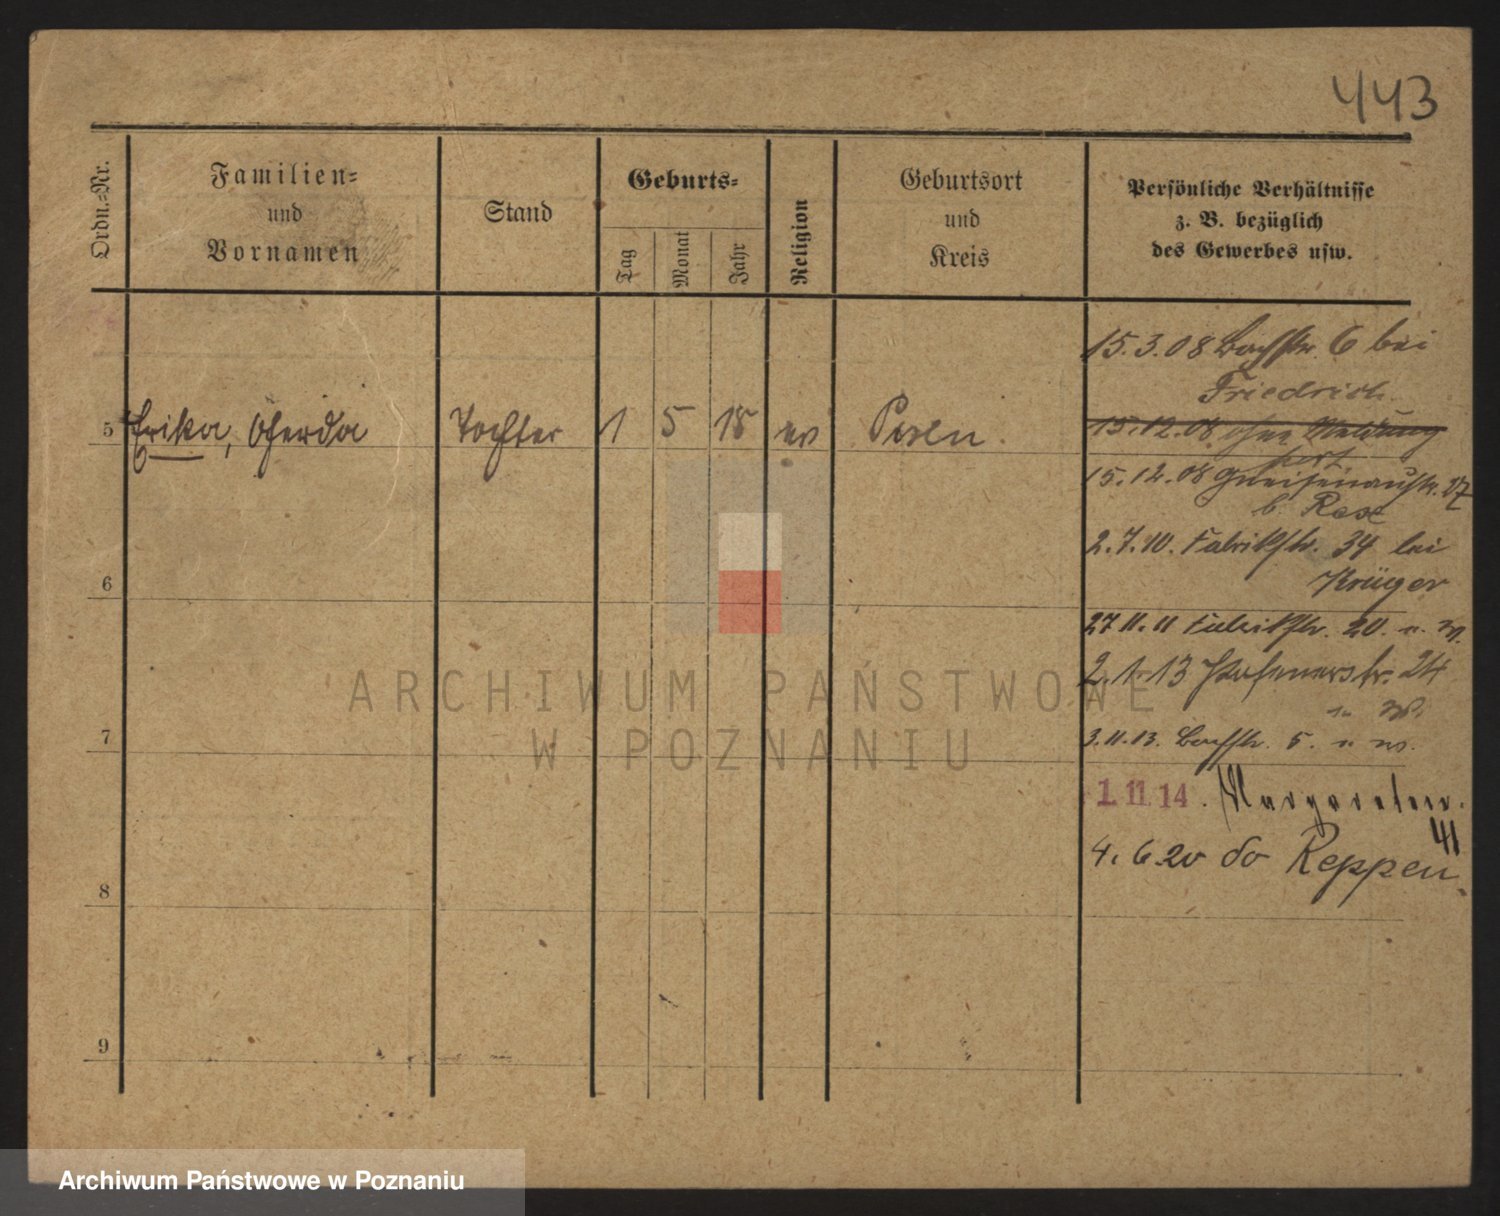 443
Ordn.-Nr.
Familien-
und
Vornamen
Stand
Geburts-
Tag
Monat
Jahr
Religion
Geburtsort
und
Kreis
Persönliche Verhältnisse
z. B. bezüglich
des Gewerbes usw.
15.3.08 Bachstr. 6 bei
Friedrich
5 Erika, Gerda Tochter 1 5 18 ev Posen.
15.12.08. ohne Meldung
fort
15.12.08 Gneisenaustr. 27
b. Rose
2.7.10. Fabrikstr. 34 bei
6
Krüger
27 11.11 Fabrikstr. 20. u. W.
2.1.13 24
u. W.
7
3.11.13. Bachstr. 5. u. W.
1.11.14. Margareten.
41
4.6.20 do Reppen.
8
9
ARCHIWUM PAŃSTWOWE
W POZNANIU
Archiwum Państwowe w Poznaniu